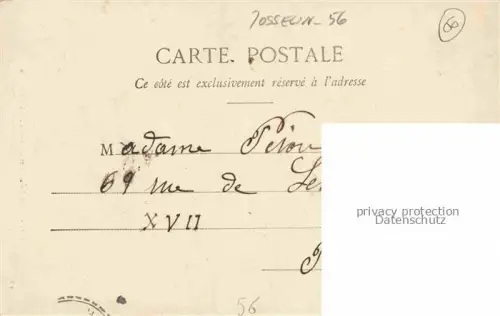 JOSSELIN 56
60
CARTE POSTALE
Ce côté est exclusivement réservé à l'adresse
Madame
69 rue de
XVII
privacy protection
Datenschutz
56